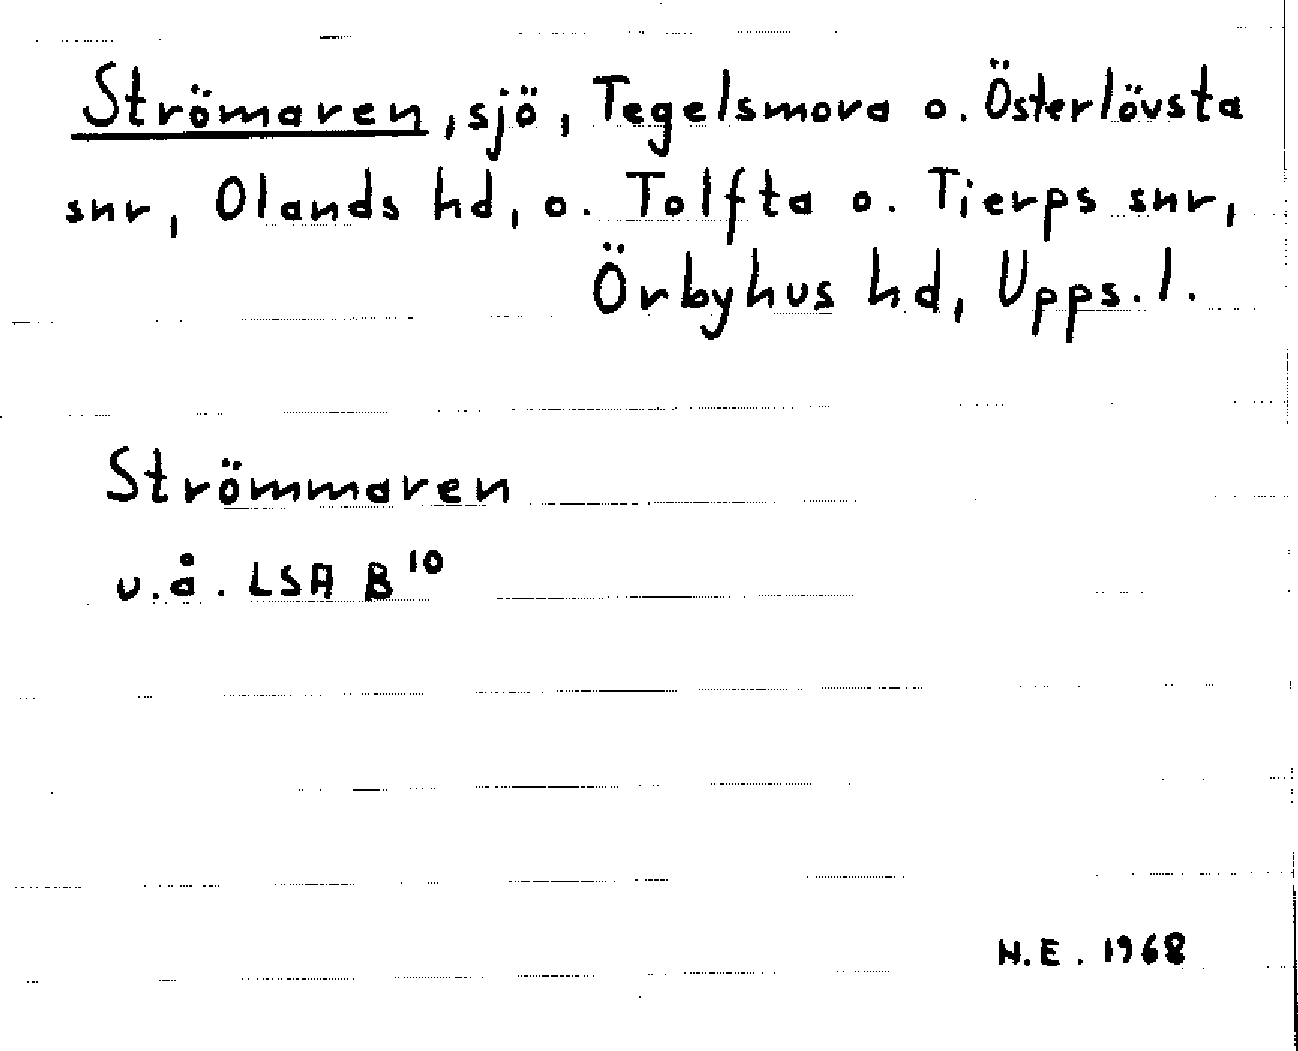 Strömaren, sjö, Tegelsmora o. Österlövsta
snr, Olands hd, o. Tolfta o. Tierps snr,
Örbyhus hd, Upps. l.
Strömmaren
u.å. LSA B¹⁰
N.E. 1968